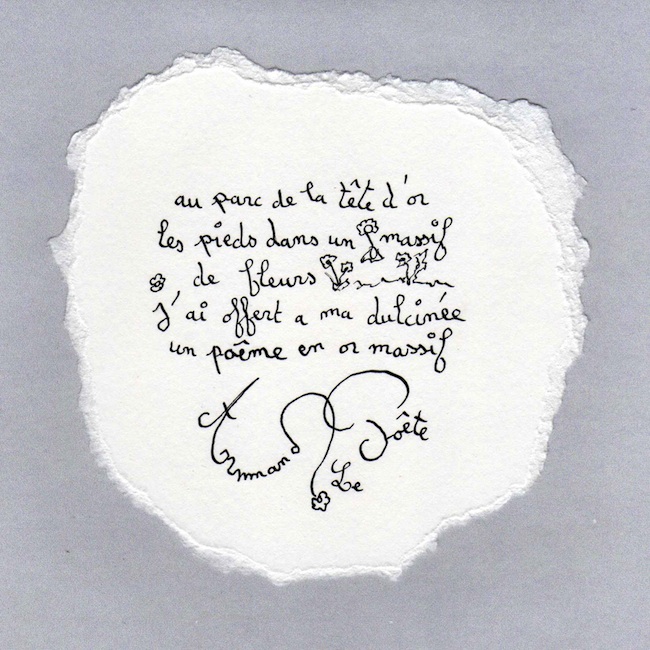 au parc de la tête d'or
les pieds dans un massif
de fleurs
J'ai offert a ma dulcinée
un poême en or massif
Armand
Le Poête